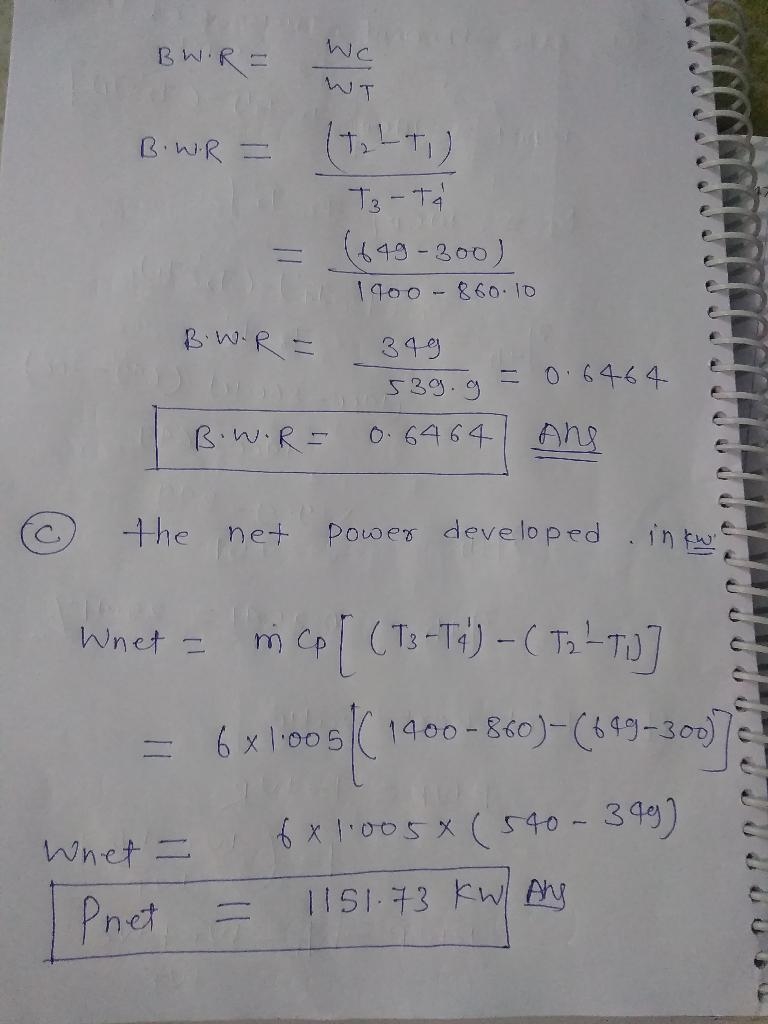 B W.R = WC / WT
B.W.R = (T2' - T1) / T3 - T4'
= (649 - 300) / 1400 - 860.10
B.W.R = 349 / 539.9 = 0.6464
B.W.R = 0.6464 Ans
(C) the net power developed . in kw
Wnet = ṁ Cp [ (T3 - T4') - (T2' - T1)]
= 6 x 1.005 [( 1400 - 860) - (649 - 300)]
Wnet = 6 x 1.005 x ( 540 - 349)
Pnet = 1151.73 KW Ans